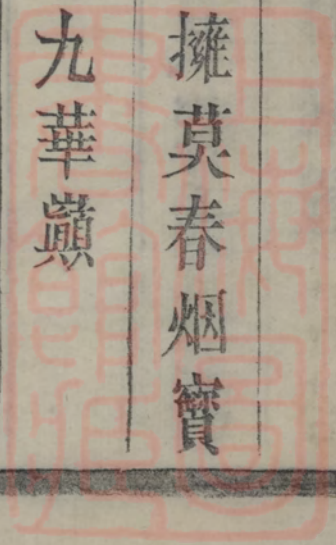 擁莫春烟寶
九華巔